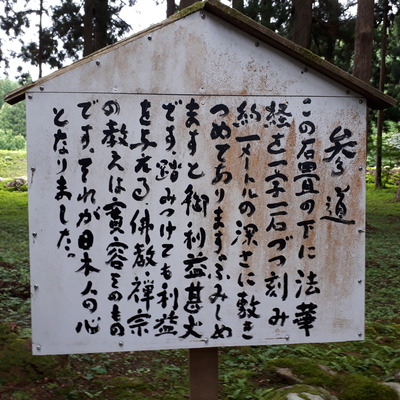 参道
この石畳の下に法華
経を一字一石づつ刻み
約一メートルの深さに敷き
つめてあります。ふみしめ
ますと御利益甚大
です。踏みつけても利益
を与える。佛教・禅宗
の教えは寛容そのもの
です。それが日本人の心
となりました。